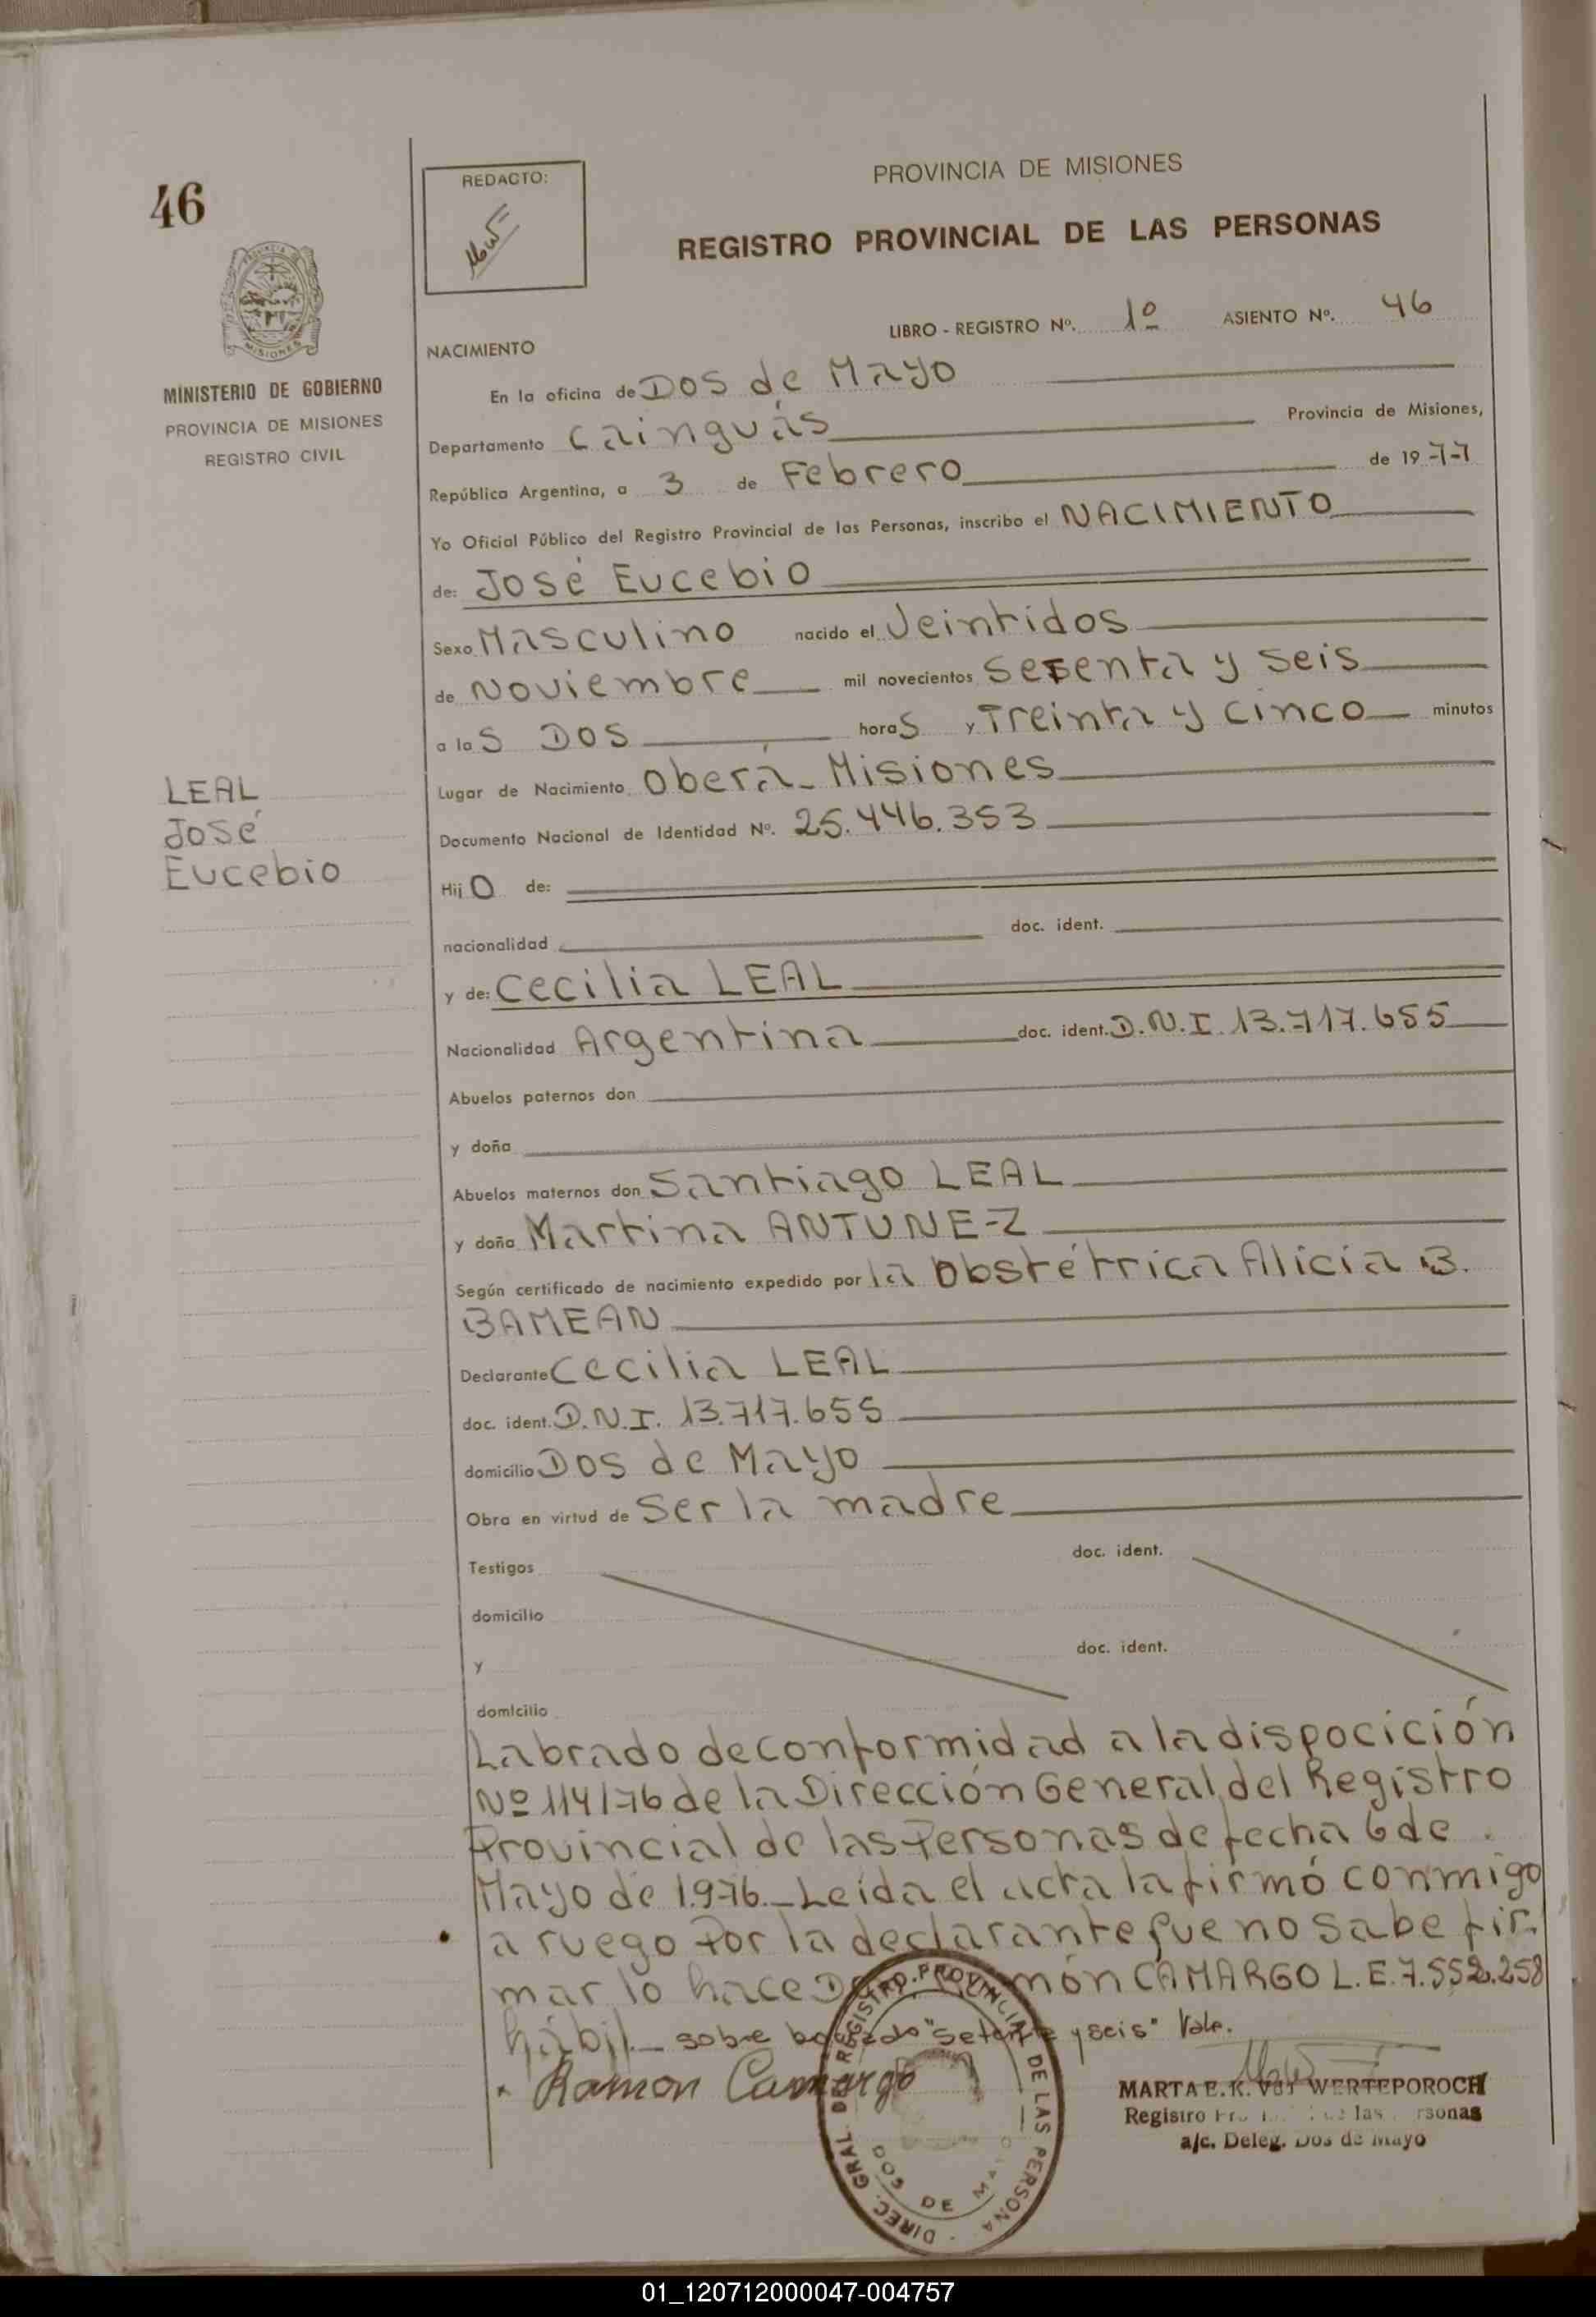 46
REDACTO:
PROVINCIA DE MISIONES
REGISTRO PROVINCIAL DE LAS PERSONAS
LIBRO - REGISTRO Nº. 1º ASIENTO Nº. 46
MISIONES
MINISTERIO DE GOBIERNO
PROVINCIA DE MISIONES
REGISTRO CIVIL
NACIMIENTO
En la oficina de DOS de MAYO
Departamento Cainguás Provincia de Misiones,
República Argentina, a 3 de Febrero de 1977
Yo Oficial Público del Registro Provincial de las Personas, inscribo el NACIMIENTO
de: José Eucebio
Sexo Masculino nacido el Veintidos
de Noviembre mil novecientos Sesenta y seis
a las DOS horas y Treinta y cinco minutos
Lugar de Nacimiento Oberá - Misiones
Documento Nacional de Identidad Nº. 25.446.353
LEAL
José
Eucebio
Hijo de:
nacionalidad doc. ident.
y de: Cecilia LEAL
Nacionalidad Argentina doc. ident. D.N.I. 13.717.655
Abuelos paternos don
y doña
Abuelos maternos don Santiago LEAL
y doña Martina ANTUNE-Z
Según certificado de nacimiento expedido por la Obstétrica Alicia B.
BAMEAN
Declarante Cecilia LEAL
doc. ident. D.N.I. 13.717.655
domicilio Dos de Mayo
Obra en virtud de Ser la madre
Testigos doc. ident.
domicilio
y doc. ident.
domicilio
Labrado de conformidad a la dispocición
Nº 114/76 de la Dirección General del Registro
Provincial de las Personas de fecha 6 de
Mayo de 1.976._ Leida el acta la firmó conmigo
a ruego por la declarante que no sabe fir-
mar lo hace CAMARGO L.E. 7.552.258
hábil._ sobre borrado "setenta y seis" Vale.
Ramon Camargo
MARTA E. K. WERTEPOROCH
Registro
a/c. Deleg. Dos de Mayo
DIREC. GRAL. DE REGISTRO PROVINCIAL DE LAS PERSONA
DOS DE MAYO
01_120712000047-004757